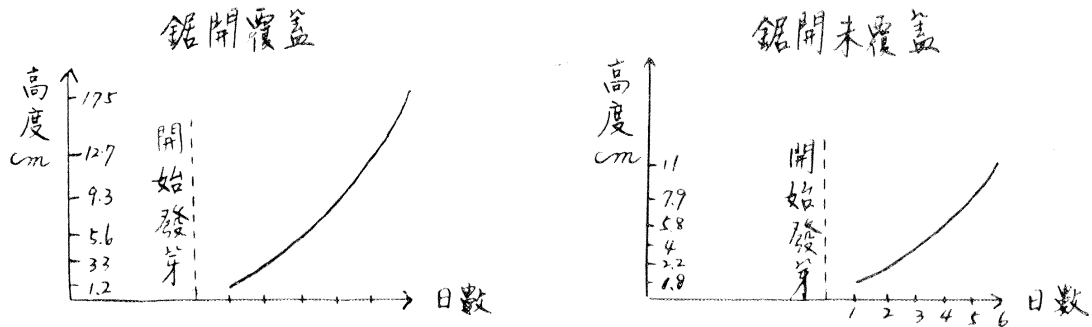 鋸開覆蓋
高度cm
175
12.7
9.3
5.6
33
1.2
開始發芽
日數
鋸開未覆蓋
高度cm
11
7.9
5.8
4
2.2
1.8
開始發芽
1 2 3 4 5 6
日數